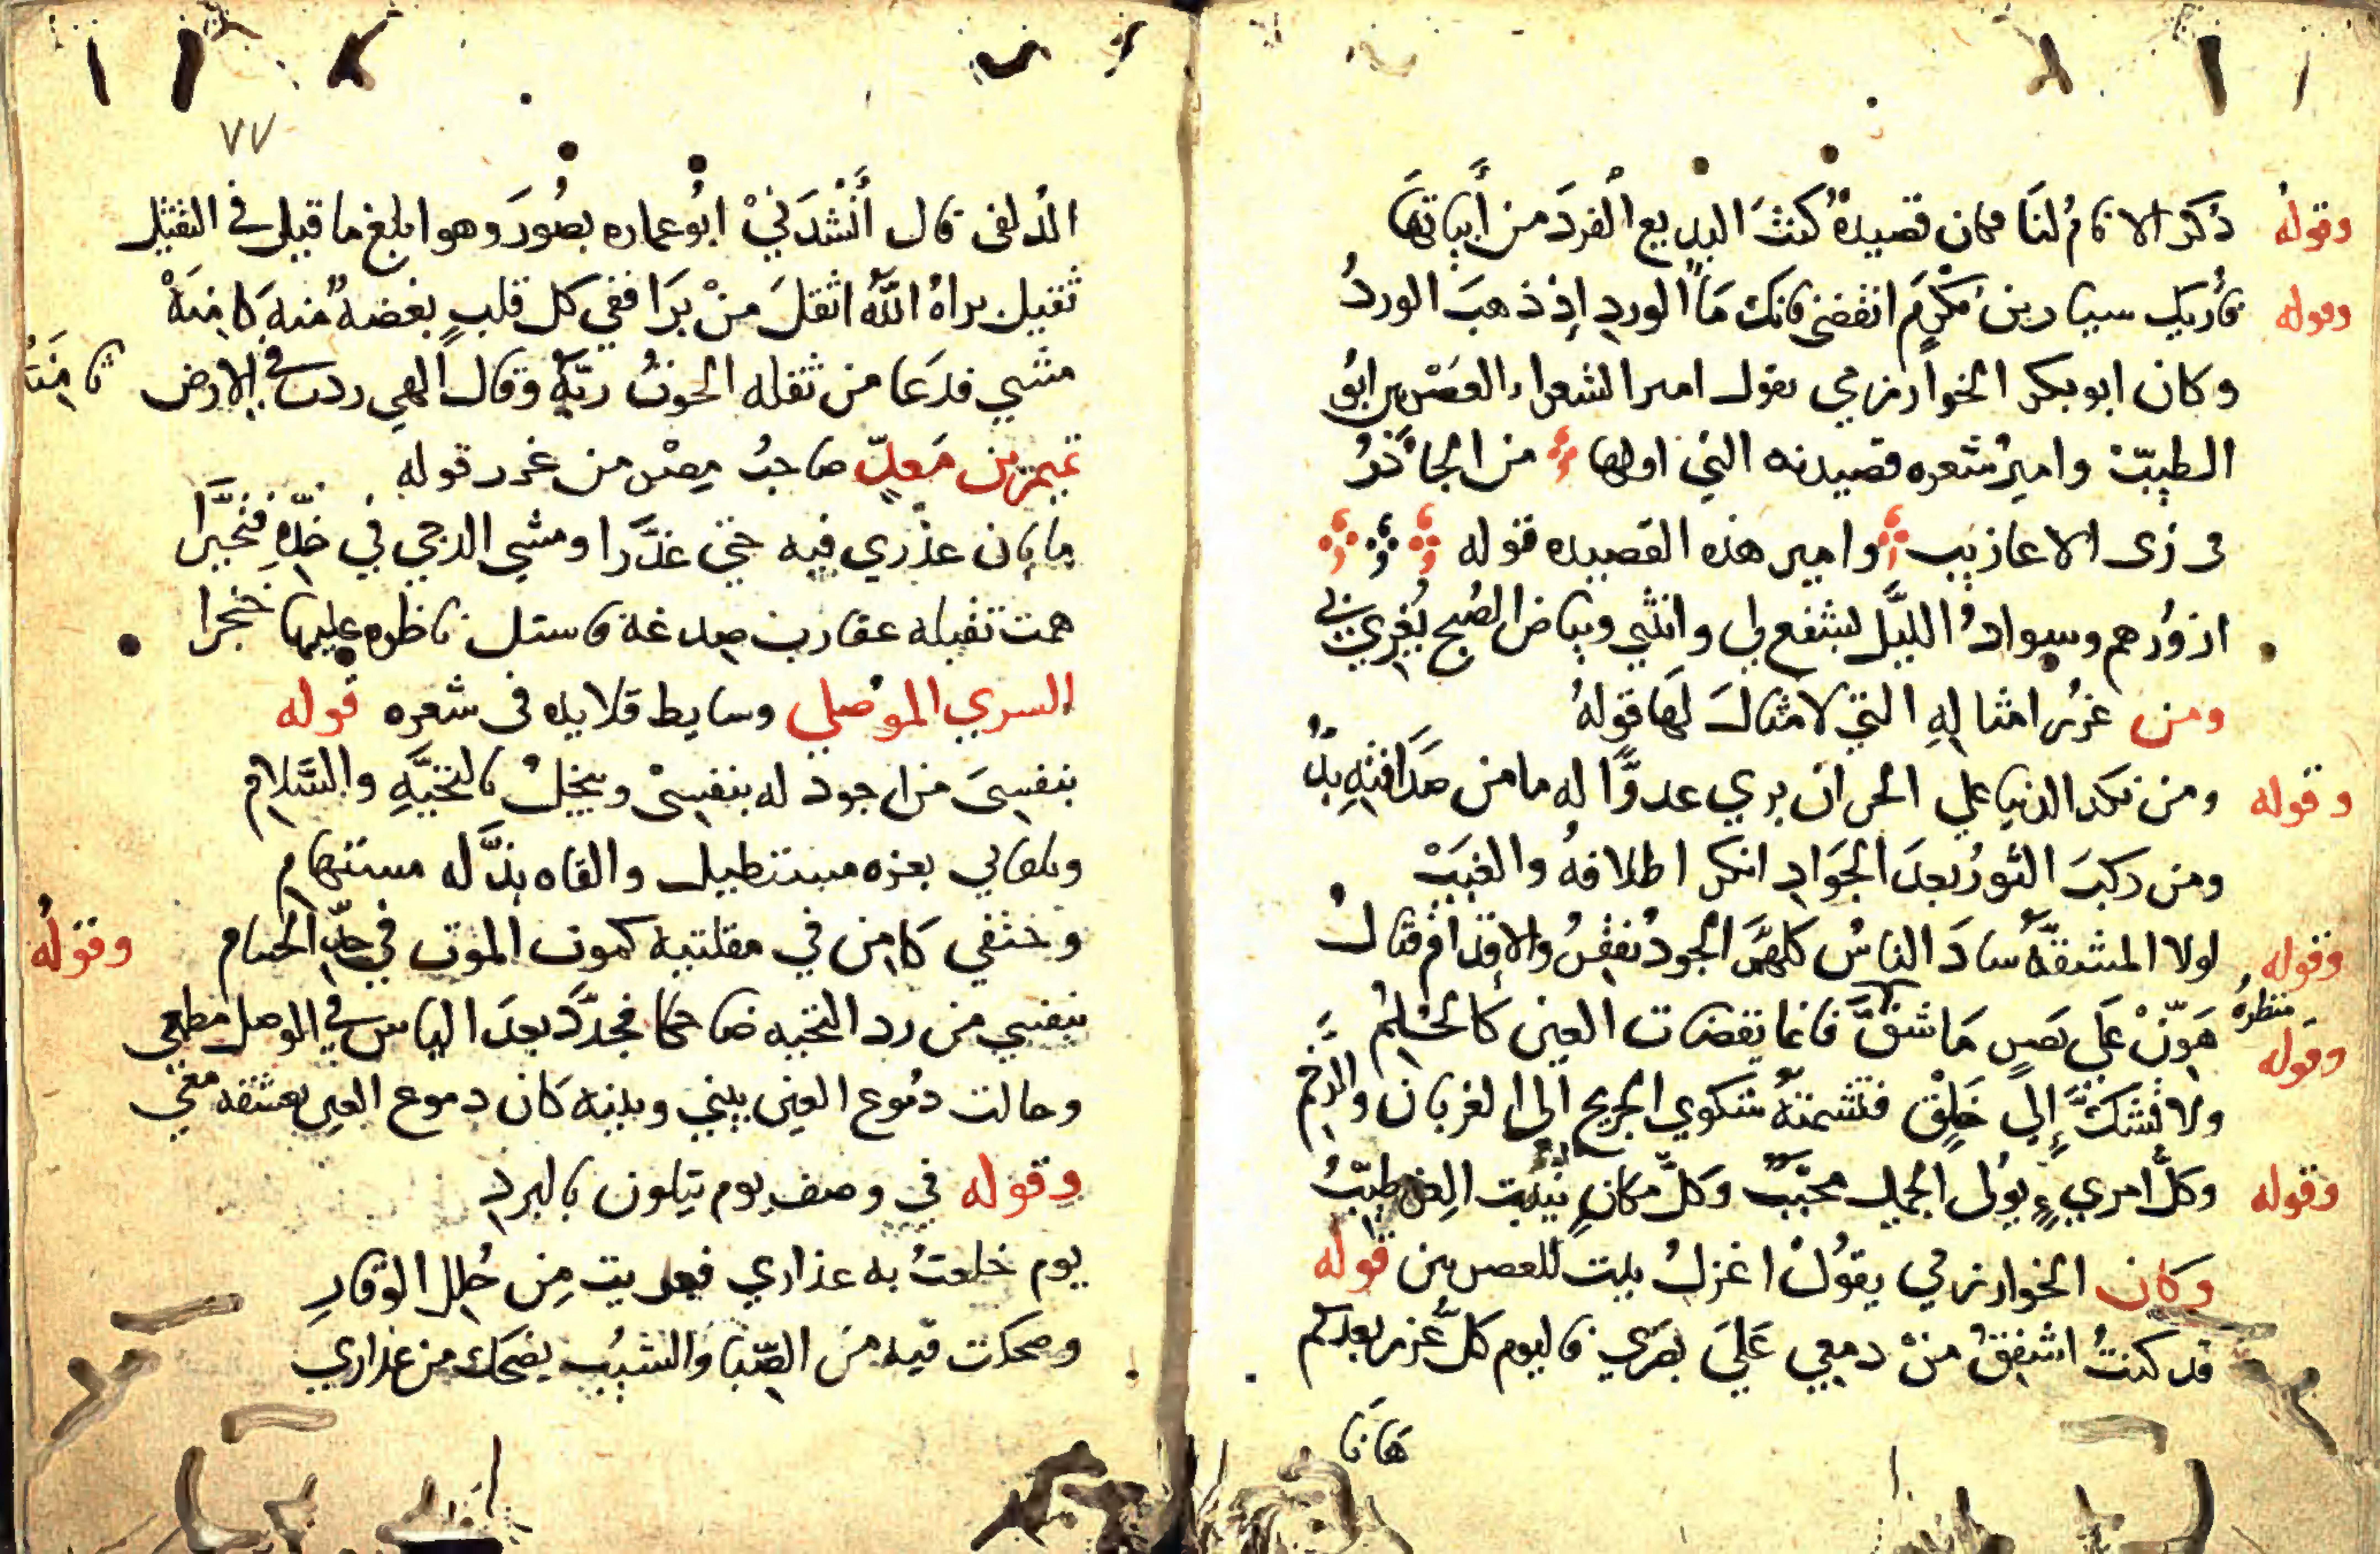 وقوله ذكر الانامُ لنَا فكان قصيدةً كنتَ البديع الفردَ من أبياتها
وقوله فان يك سيار بن مكرم انقضى فانك مَا الورد اِذ ذهبَ الوردُ
وكان ابو بكر الخوارزمي يقول امير الشعراء العصريين ابو
الطيب وامير شعره قصيدته التي اولها من الجآذرُ
في زى الاعاريب وامير هذه القصيده قوله
ازورهم وسوادُ الليل يشفع لي وانثني وبياض الصُبح يُغري بي
ومن غرر امثالهِ التي لا مثال لها قولهُ
ومن نكد الدنيا علي الحر ان يري عدوًّا له ما من صداقته بدُّ
وقوله ومن ركبَ الثورُ بعدَ الجوَادِ انكر اظلافهُ والغببْ
وقوله لولا المشقةُ سادَ الناسُ كلهمُ الجود يفقرُ والاقدام قتالُ
وقوله هوّنْ عَلى بصرٍ مَا شقَّ منظرهُ فانما يقضات العين كالحُلم
ولا تشكَّ إلي خَلقٍ فتشمته شكوي الجريح الي الغربان والرخم
وقوله وكلُّ امريءٍ يولى الجميل محبّب وكلّ مكانٍ ينبت العز طيّبُ
وكان الخوارزمي يقولُ اغزلُ بيت للعصريين قوله
قد كنتُ اشفقُ منْ دمعي عَليَ بصَري فاليوم كلُّ عزيز بعدكم
هَانَا
٧٧
الدلفى قال أنْشدَنيْ ابُو عماره بصُورَ وهو ابلغ ما قيل في الثقيل
ثقيل براهُ اللهُ اثقلَ منْ برَا ففي كل قلبٍ بغضهُ منه كامِنَهْ
مشي فدعَا من ثقله الحوتُ ربَّهُ وقال الهي ردت في الارض ثامِنَهْ
تميم بن مَعدّ صاحبُ مصْر من غرر قوله
ما بان عذْري فيه حتي غدَّرا ومشي الدجي في خدّهِ فتحيَّرا
همت تقبله عقارب صدغه فاستل ناظره عليها خنجرا
السري الموُصلي وسايط قلايده فى شعره قوله
بنفسيَ من اجود له بنفسيْ ويبخلُ بالتحيَّهِ والسَّلامِ
ويلقاني بعزه مستطيل والقاه بذَّله مستهام
وحتفي كامِن في مقلتيه كموت الموت في حدِّ الحسام
وقولهُ بنفسي من رد التحيه ضاحكا فجدَّدَ بعدَ الياس في الوصل مطمعي
وحالت دمُوع العين بيني وبينه كان دموع العين يعشقه معي
وقوله في وصف يوم يتلون بالبردِ
يوم خلعتُ به عذاري فعريت مِن حُلل الوقارِ
وضحكت فيه من الصّبَا والشيبُ يضحك من عذاري